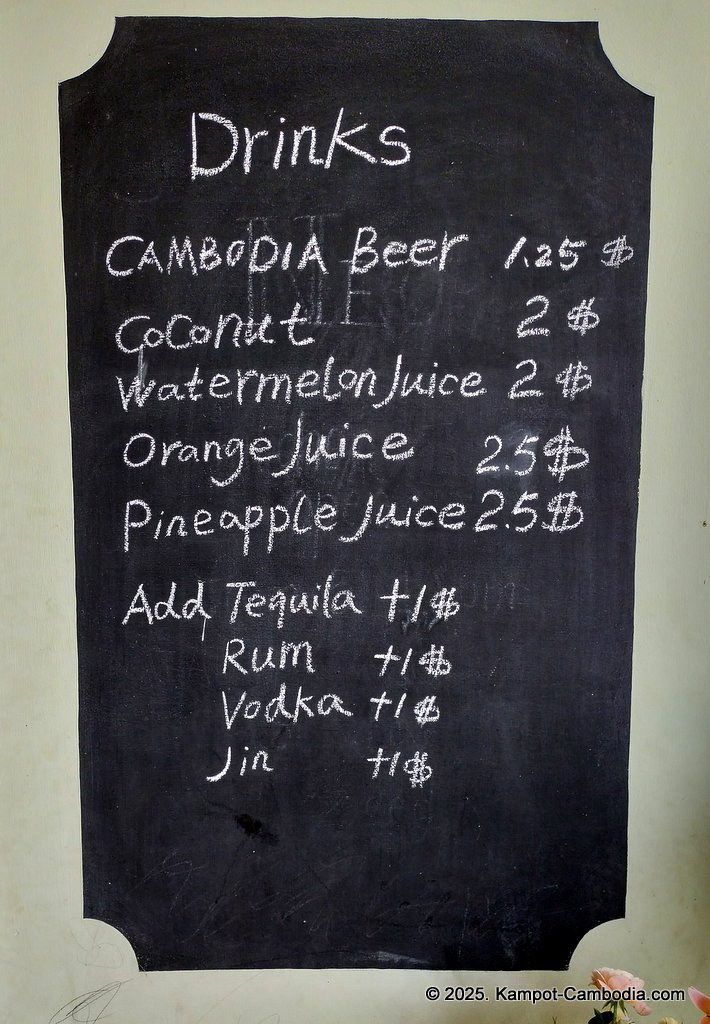 Drinks
CAMBODIA Beer 1.25 $
Coconut 2 $
Watermelon Juice 2 $
Orange Juice 2.5 $
Pineapple Juice 2.5 $
Add Tequila +1 $
Rum +1 $
Vodka +1 $
Jin +1 $
© 2025. Kampot-Cambodia.com